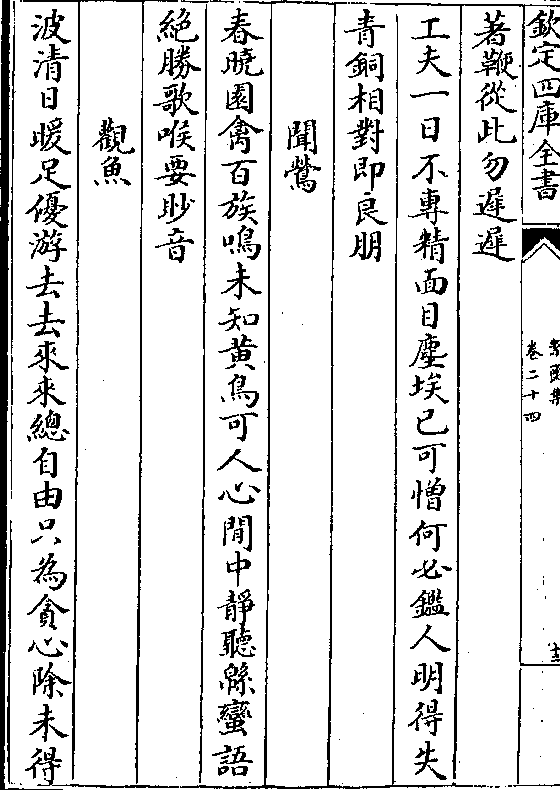 欽定四庫全書
卷二十四
著鞭從此勿遲遲
工夫一日不專精面目塵埃已可憎何必鑑人明得失
青銅相對即良朋
聞鶯
春曉園禽百族鳴未知黃鳥可人心閒中靜聽緜蠻語
絶勝歌喉要眇音
觀魚
波清日暖足優游去去來來總自由只為貪心除未得